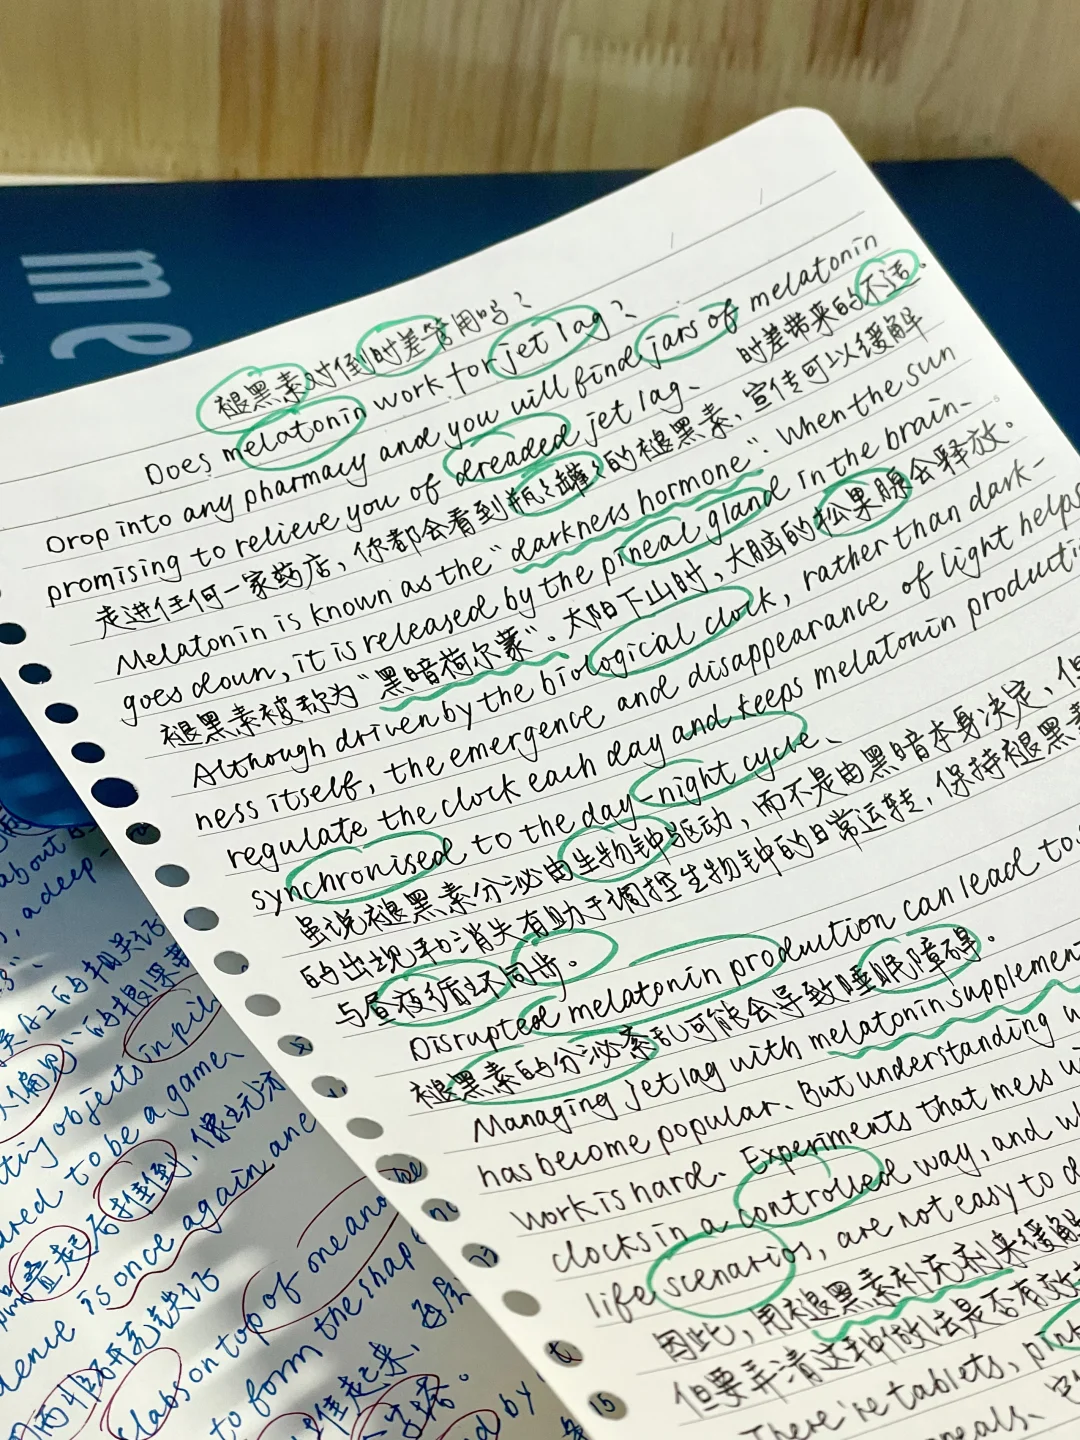 me
褪黑素对倒时差管用吗?
Does melatonin work for jet lag?
Drop into any pharmacy and you will find jars of melatonin
promising to relieve you of dreaded jet lag. 时差带来的不适。
走进任何一家药店,你都会看到瓶瓶罐罐的褪黑素,宣传可以缓解
Melatonin is known as the "darkness hormone": When the sun
goes down, it is released by the pineal gland in the brain.
褪黑素被称为"黑暗荷尔蒙"。太阳下山时,大脑的松果腺会释放。
Although driven by the biological clock, rather than dark-
ness itself, the emergence and disappearance of light helps
regulate the clock each day and keeps melatonin producti
synchronised to the day-night cycle.
虽说褪黑素分泌由生物钟驱动,而不是由黑暗本身决定,但
的出现和消失有助于调控生物钟的日常运转,保持褪黑素
与昼夜循环同步。
Disrupted melatonin production can lead to
褪黑素的分泌紊乱可能会导致睡眠障碍。
Managing jet lag with melatonin supplemen
has become popular. But understanding
work is hard. Experiments that mess wi
clocks in a controlled way, and w
life scenarios, are not easy to d
因此,用褪黑素补充剂来缓解
但要弄清这种做法是否有效
There're tablets, pi
meals.
about
, a deep-
的相关证
in pil
ting objects
dred to be a game.
后推倒,像玩
is once again
dence
labs on top of one ano
to form the shap
起来,
d by
15